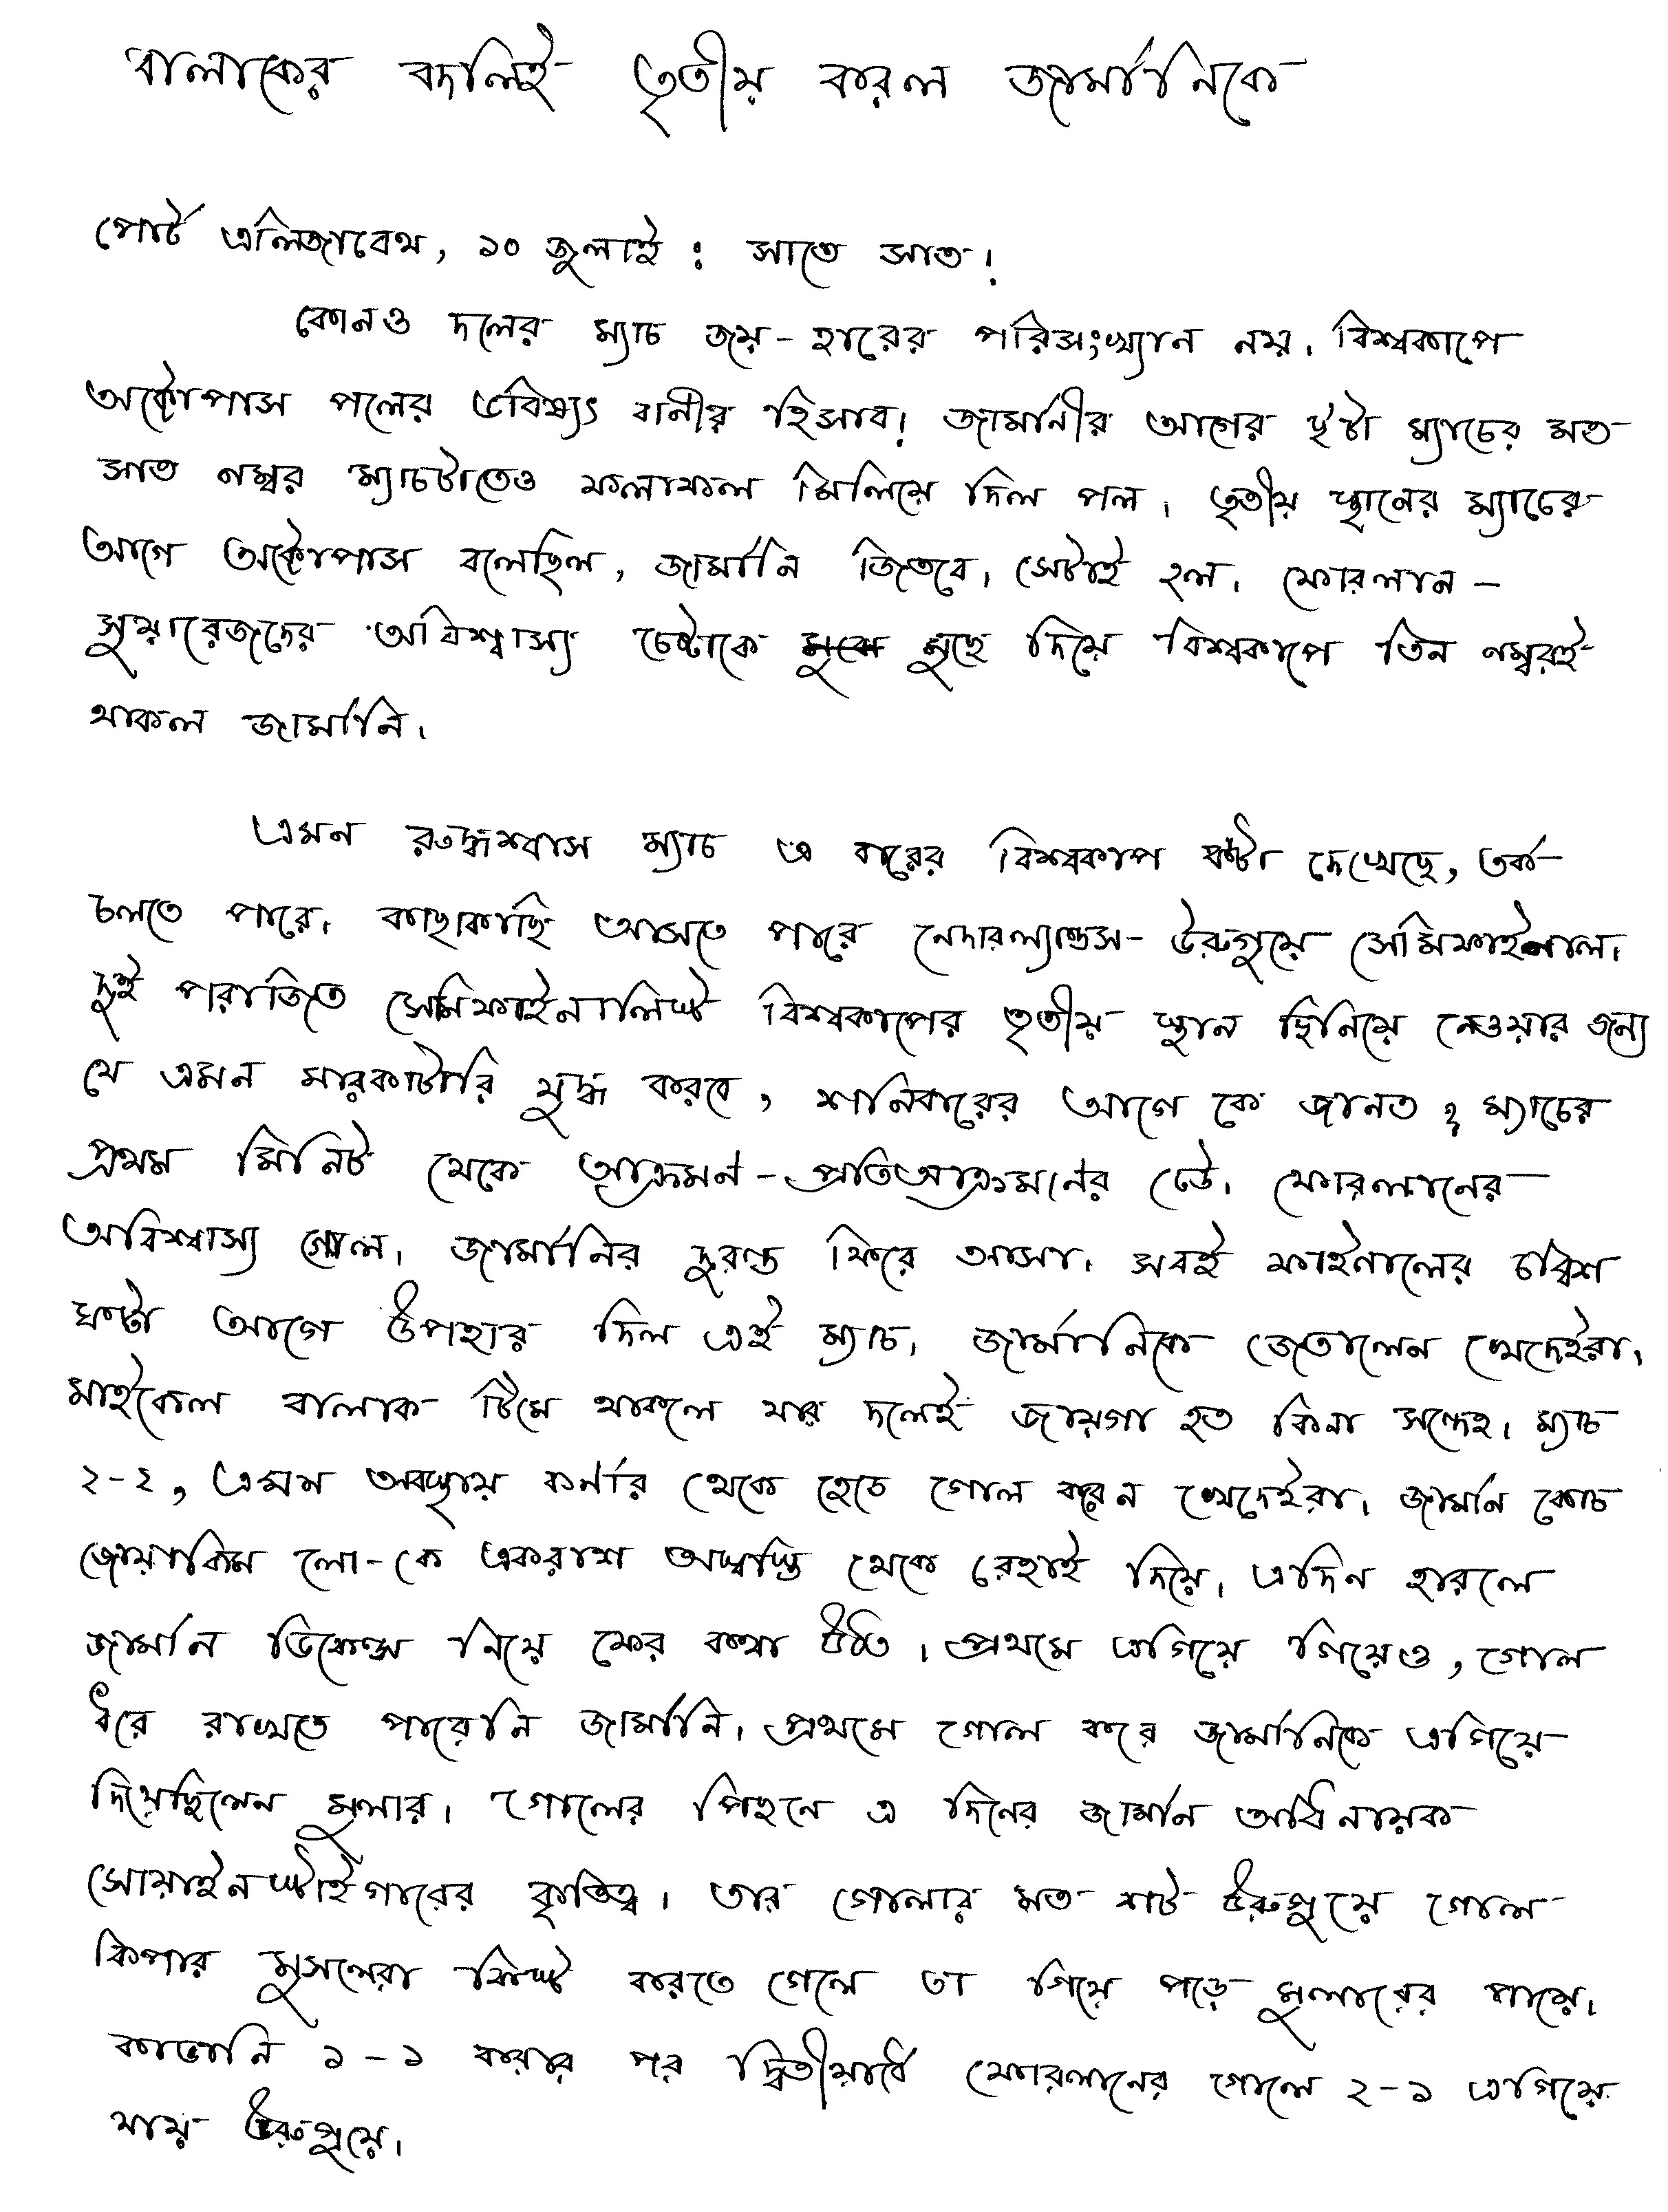 বালাকের বদলিই তৃতীয় করল জার্মানিকে
পোর্ট এলিজাবেথ, ১০ জুলাই : সাতে সাত!
কোনও দলের ম্যাচ জয়-হারের পরিসংখ্যান নয়। বিশ্বকাপে
অক্টোপাস পলের ভবিষ্যৎ বানীর হিসাব! জার্মানীর আগের ছ'টা ম্যাচের মত
সাত নম্বর ম্যাচটাতেও ফলাফল মিলিয়ে দিল পল। তৃতীয় স্থানের ম্যাচের
আগে অক্টোপাস বলেছিল, জার্মানি জিতবে। সেটাই হল। ফোরলান-
সুয়ারেজদের অবিশ্বাস্য চেষ্টাকে মুছে দিয়ে বিশ্বকাপে তিন নম্বরই
থাকল জার্মানি।
এমন রুদ্ধশ্বাস ম্যাচ এ বারের বিশ্বকাপ ক'টা দেখেছে, তর্ক
চলতে পারে। কাছাকাছি আসতে পারে নেদারল্যান্ডস-উরুগুয়ে সেমিফাইনাল।
দুই পরাজিত সেমিফাইনালিস্ট বিশ্বকাপের তৃতীয় স্থান ছিনিয়ে নেওয়ার জন্য
যে এমন মারকাটারি যুদ্ধ করবে, শনিবারের আগে কে জানত? ম্যাচের
প্রথম মিনিট থেকে আক্রমণ-প্রতিআক্রমণের ঢেউ। ফোরলানের
অবিশ্বাস্য গোল। জার্মানির দুরন্ত ফিরে আসা। সবই ফাইনালের চব্বিশ
ঘণ্টা আগে উপহার দিল এই ম্যাচ। জার্মানিকে জেতালেন খেদেইরা।
মাইকেল বালাক টিমে থাকলে যার দলেই জায়গা হত কিনা সন্দেহ। ম্যাচ
২-২, এমন অবস্থায় কর্নার থেকে হেডে গোল করেন খেদেইরা। জার্মান কোচ
জোয়াকিম লো-কে একরাশ অস্বস্তি থেকে রেহাই দিয়ে। এদিন হারলে
জার্মান ডিফেন্স নিয়ে ফের কথা উঠত। প্রথমে এগিয়ে গিয়েও, গোল
ধরে রাখতে পারেনি জার্মানি। প্রথমে গোল করে জার্মানিকে এগিয়ে
দিয়েছিলেন মুলার। গোলের পিছনে এ দিনের জার্মান অধিনায়ক
সোয়াইনস্টাইগারের কৃতিত্ব। তার গোলার মত শট উরুগুয়ে গোল
কিপার মুসলেরা ফিস্ট করতে গেলে তা গিয়ে পড়ে মুলারের পায়ে।
কাভানি ১-১ করার পর দ্বিতীয়ার্ধে ফোরলানের গোলে ২-১ এগিয়ে
যায় উরুগুয়ে।